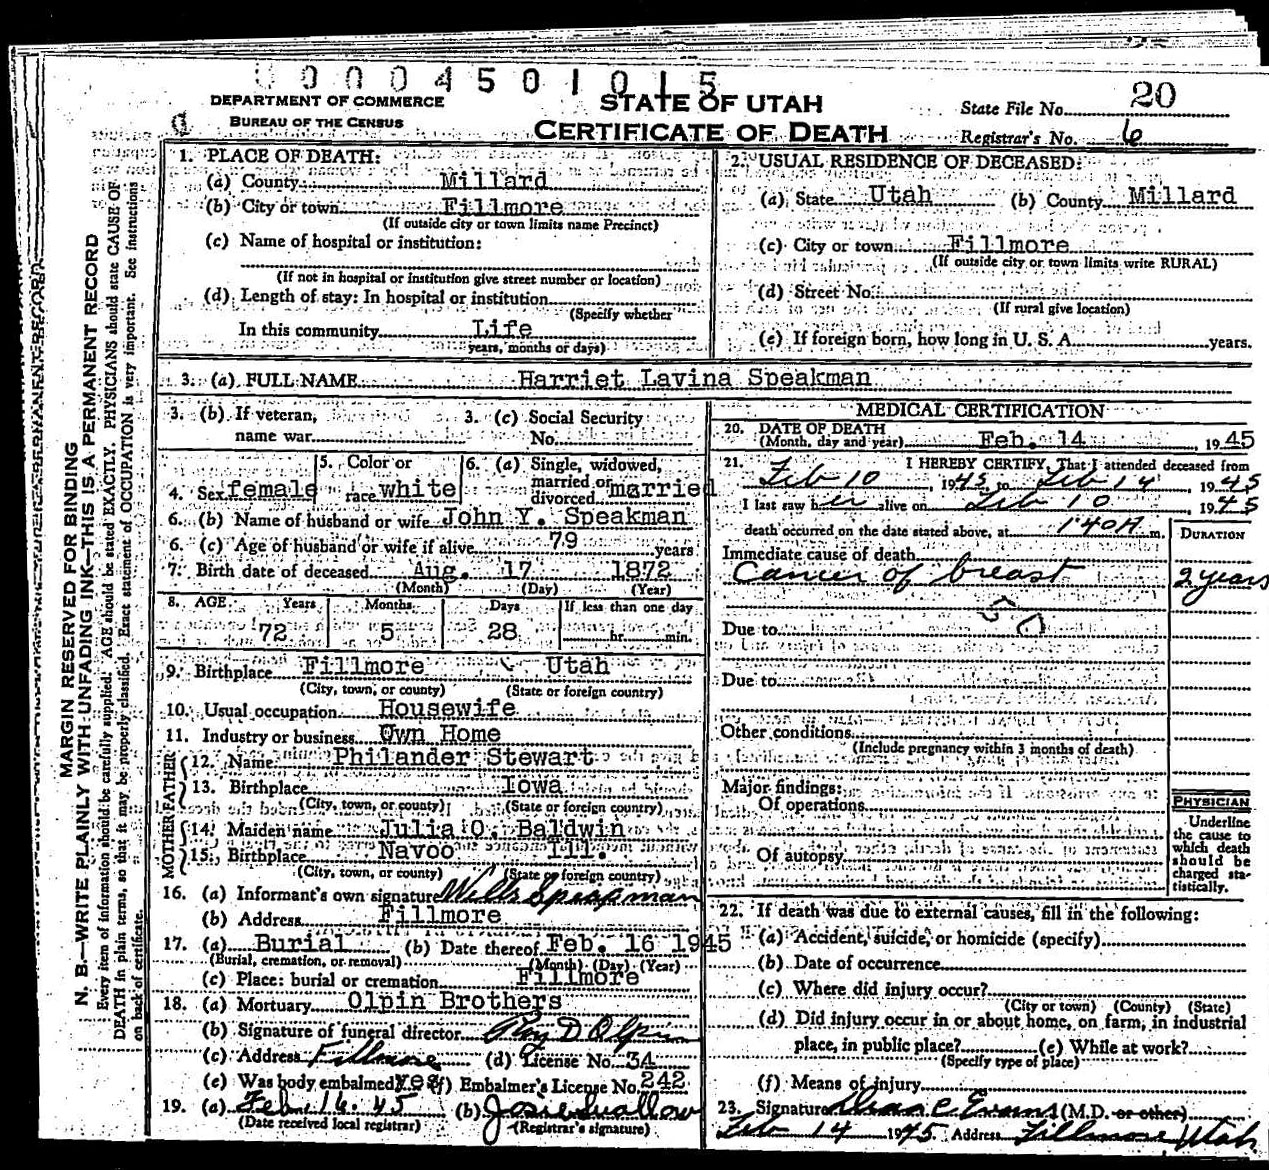 0004501015
DEPARTMENT OF COMMERCE
BUREAU OF THE CENSUS
STATE OF UTAH
CERTIFICATE OF DEATH
State File No. 20
Registrar's No. 6
MARGIN RESERVED FOR BINDING
N. B.—WRITE PLAINLY WITH UNFADING INK—THIS IS A PERMANENT RECORD
Every item of information should be carefully supplied. AGE should be stated EXACTLY. PHYSICIANS should state CAUSE OF
DEATH in plain terms, so that it may be properly classified. Exact statement of OCCUPATION is very important. See instructions
on back of certificate.
1. PLACE OF DEATH:
(a) County Millard
(b) City or town Fillmore
(If outside city or town limits name Precinct)
(c) Name of hospital or institution:
(If not in hospital or institution give street number or location)
(d) Length of stay: In hospital or institution
(Specify whether
In this community Life
years, months or days)
2. USUAL RESIDENCE OF DECEASED:
(a) State Utah (b) County Millard
(c) City or town Fillmore
(If outside city or town limits write RURAL)
(d) Street No.
(If rural give location)
(e) If foreign born, how long in U. S. A. years.
3. (a) FULL NAME Harriet Lavina Speakman
3. (b) If veteran,
name war
3. (c) Social Security
No.
4. Sex female
5. Color or
race white
6. (a) Single, widowed,
married or
divorced married
6. (b) Name of husband or wife John Y. Speakman
6. (c) Age of husband or wife if alive 79 years
7. Birth date of deceased Aug. 17 1872
(Month) (Day) (Year)
8. AGE Years Months Days If less than one day
72 5 28 hr. min.
9. Birthplace Fillmore Utah
(City, town, or county) (State or foreign country)
10. Usual occupation Housewife
11. Industry or business Own Home
FATHER
12. Name Philander Stewart
13. Birthplace Iowa
(City, town, or county) (State or foreign country)
MOTHER
14. Maiden name Julia O. Baldwin
15. Birthplace Navoo Ill.
(City, town, or county) (State or foreign country)
16. (a) Informant's own signature Speakman
(b) Address Fillmore
17. (a) Burial (b) Date thereof Feb. 16 1945
(Burial, cremation, or removal) (Month) (Day) (Year)
(c) Place: burial or cremation Fillmore
18. (a) Mortuary Olpin Brothers
(b) Signature of funeral director Roy D Olpin
(c) Address Fillmore (d) License No. 34
(e) Was body embalmed yes (f) Embalmer's License No. 242
19. (a) Feb. 16. 45 (b) Josie Swallow
(Date received local registrar) (Registrar's signature)
MEDICAL CERTIFICATION
20. DATE OF DEATH
(Month, day and year) Feb. 14, 1945
21. I HEREBY CERTIFY, That I attended deceased from
Feb 10, 1945 to Feb 14, 1945
I last saw her alive on Feb 10, 1945
death occurred on the date stated above, at 1:40 A m.
DURATION
Immediate cause of death
Cancer of breast 2 years
50
Due to
Due to
Other conditions
(Include pregnancy within 3 months of death)
Major findings:
Of operations
Of autopsy
PHYSICIAN
Underline
the cause to
which death
should be
charged sta-
tistically.
22. If death was due to external causes, fill in the following:
(a) Accident, suicide, or homicide (specify)
(b) Date of occurrence
(c) Where did injury occur?
(City or town) (County) (State)
(d) Did injury occur in or about home, on farm, in industrial
place, in public place? (e) While at work?
(Specify type of place)
(f) Means of injury
23. Signature Dean C Evans (M.D. or other)
Feb 14 1945. Address Fillmore, Utah.